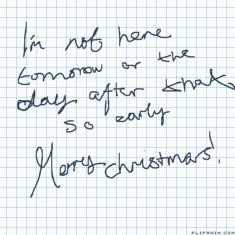 I'm not here
tomorrow or the
day after that
so early
Merry christmas!
FLIPANIM.COM